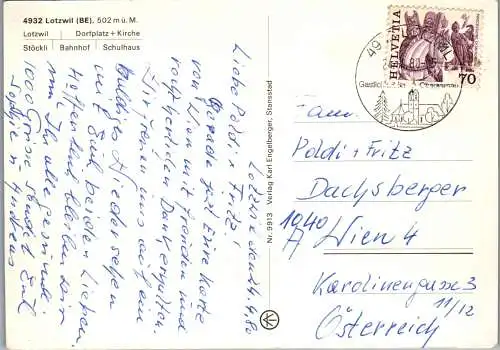 4932 Lotzwil (BE), 502 m ü. M.
Lotzwil | Dorfplatz + Kirche
Stöckli | Bahnhof | Schulhaus
Lotzwil den 24.4.80
Liebe Poldi + Fritz!
Gerade jetzt Eure Karte
von Wien mit Freuden und
Danke
Wir freuen uns auf ein
Wiedersehen
mit Euch beiden Lieben.
Hoffentlich bleiben wir
nun Ihr alle gesund.
1000 Grüsse sendet Eul
Sophie + Andreas
Nr. 9913 Verlag Karl Engelberger, Stansstad
HELVETIA
70
80
Fam.
Poldi + Fritz
Dachsberger
1040
A Wien 4
Karolinengasse 3
11/12
Österreich